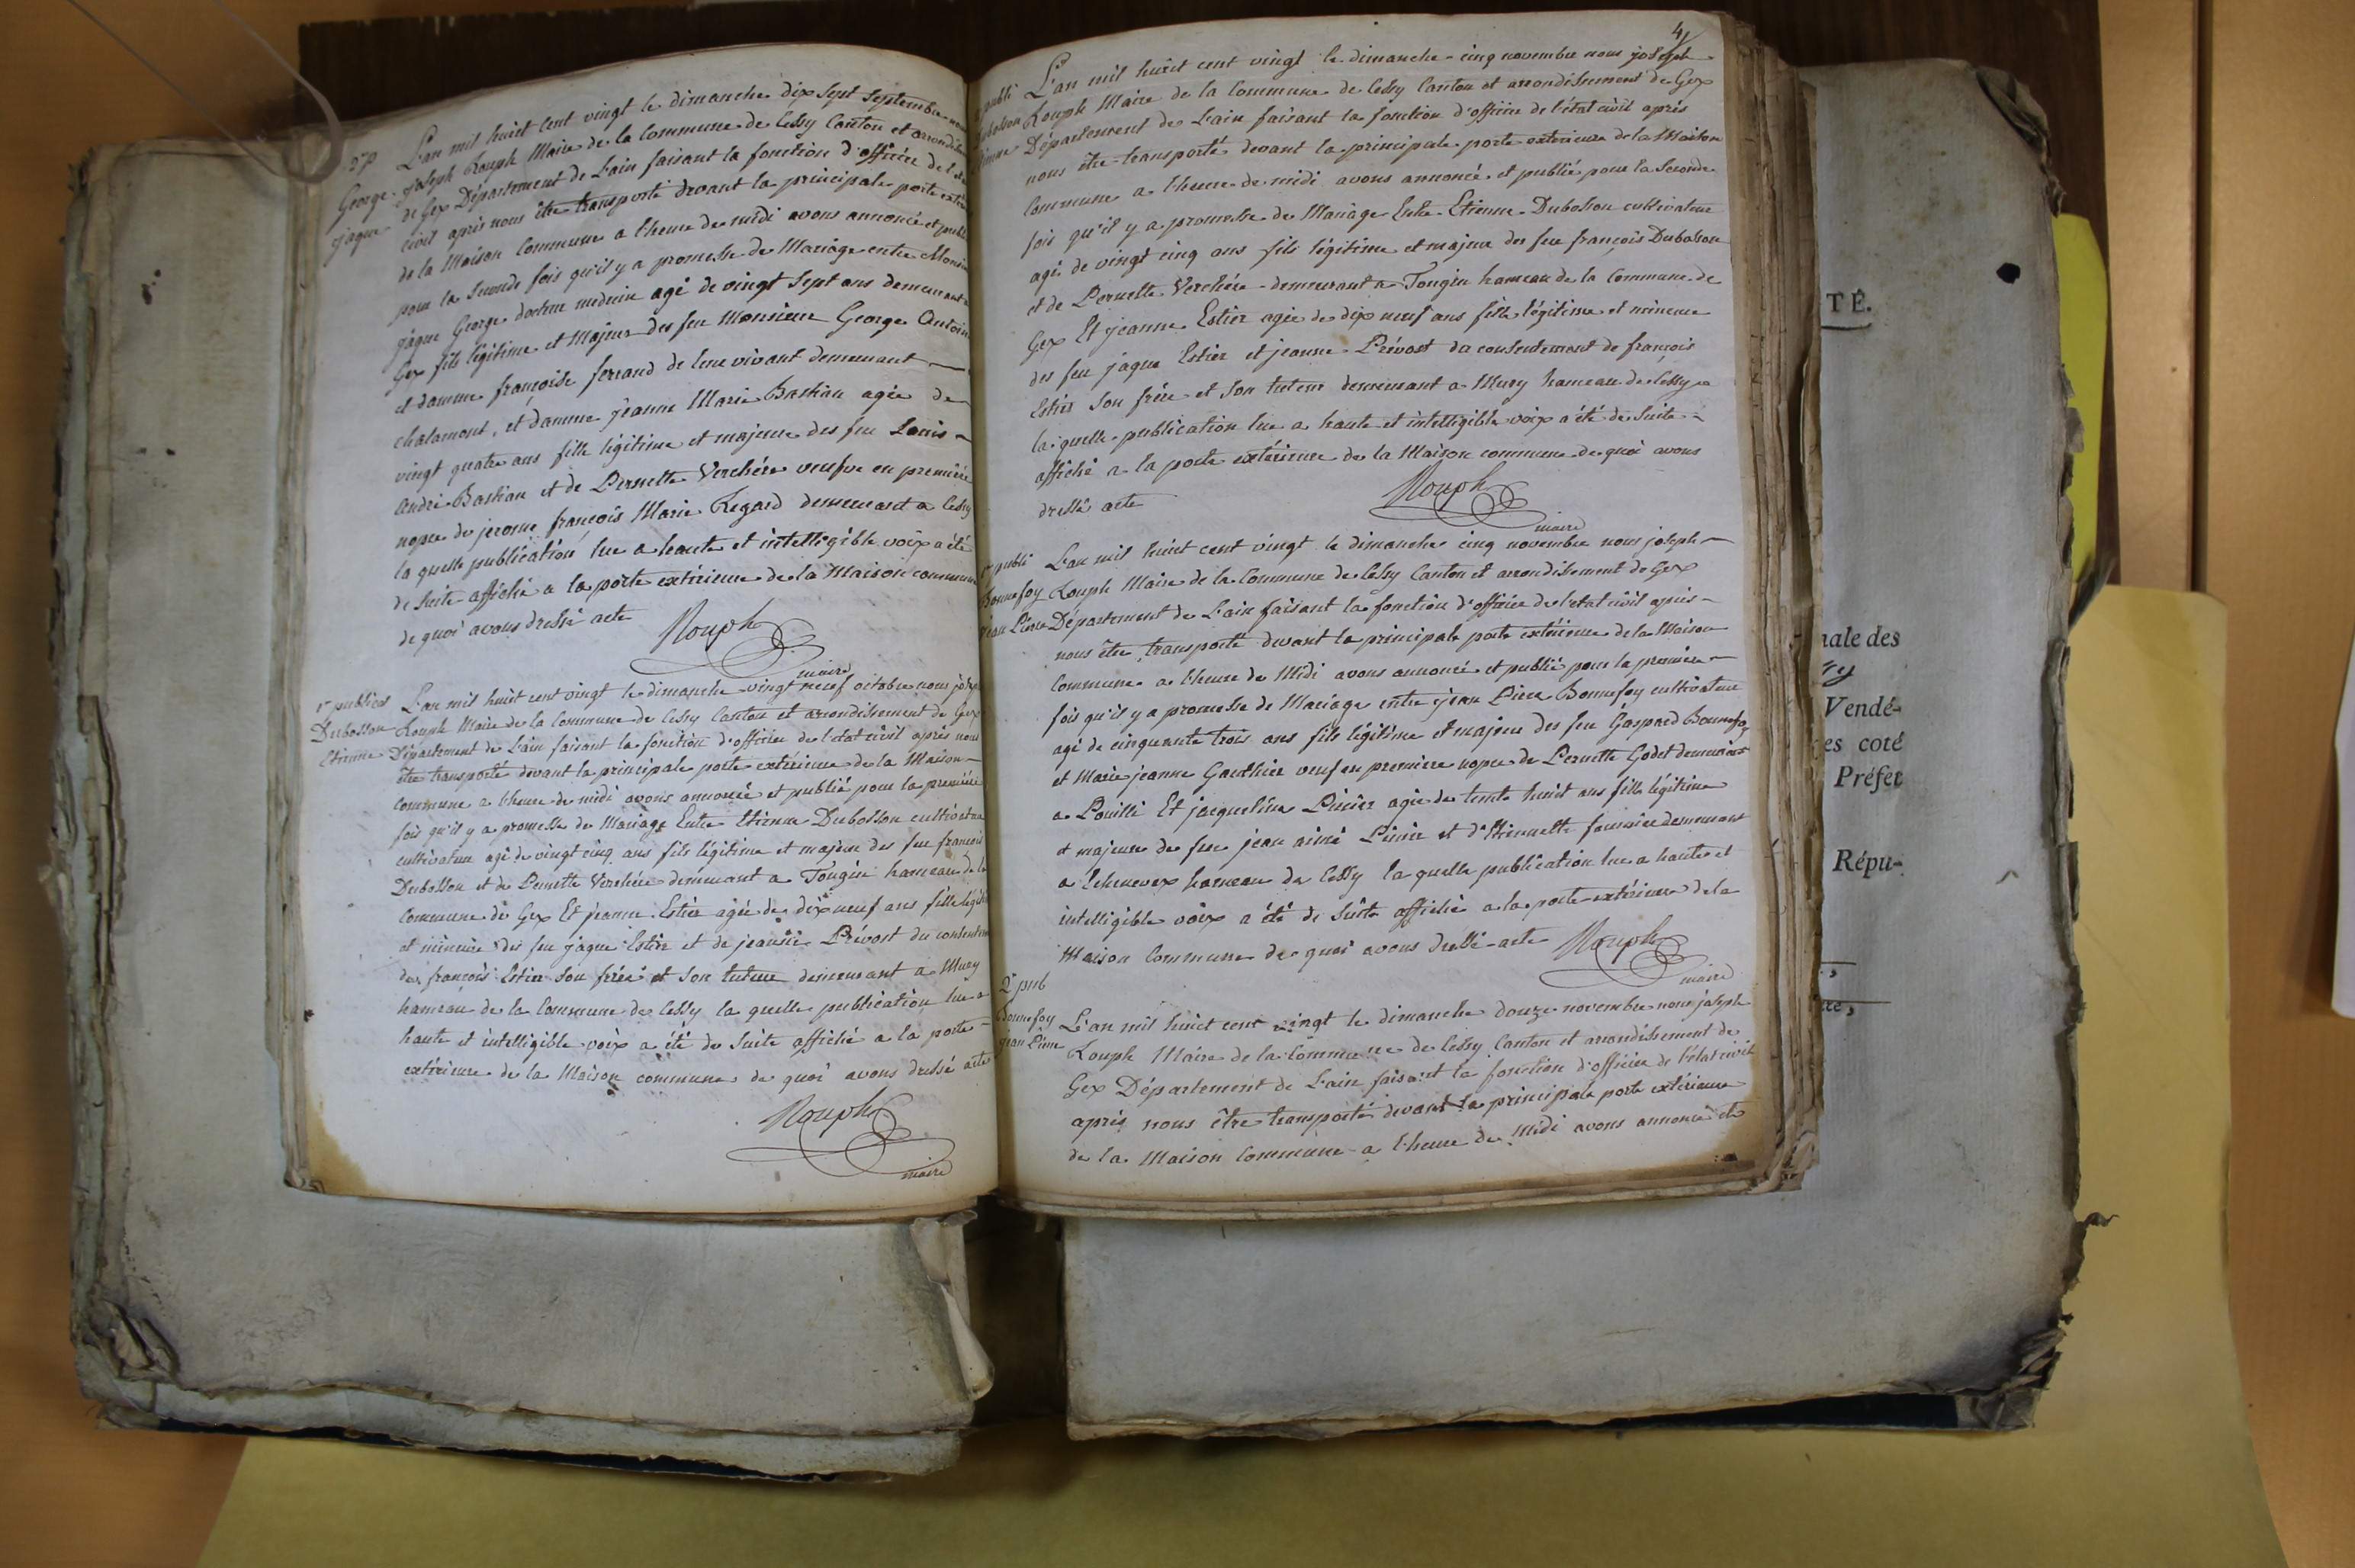 2e p
George
jaque
L'an mil huit cent vingt le dimanche dix sept septembre nous
joseph Rouph Maire de la Commune de Cessy Canton et arrondissem
de Gex Département de L'ain faisant la fonction d'officier de l'état
civil après nous être transporté devant la principale porte extér
de la Maison Commune a l'heure de midi avons annoncé et publié
pour la Seconde fois qu'il y a promesse de Mariage entre Monsieur
jâque George docteur medecin agé de vingt Sept ans demeurant a
Gex fils légitime et Majeur des feu Monsieur George Antoin
et damme françoise ferrand de leur vivant demeurant
chalamont, et damme jeanne Marie Bastian agée de
vingt quatre ans fille légitime et majeure des feu Louis
André Bastian et de Pernette Verchére veufve en première
nopce de jerome françois Marie Regard demeurant a Cessy
la quelle publication lue a haute et intelligible voix a été
de Suite affiché a la porte extérieure de la Maison commune
de quoi avons dressé acte
Rouph
maire
1re publicat
Dubosson
Etienne
L'an mil huit cent vingt le dimanche vingt neuf octobre nous joseph
Rouph Maire de la Commune de Cessy Canton et arrondissement de Gex
Département de L'ain faisant la fonction d'officier de l'état civil après nous
être transporté devant la principale porte extérieure de la Maison
Commune a l'heure de midi avons annoncé et publié pour la première
fois qu'il y a promesse de Mariage Entre Etienne Dubosson cultivateur
cultivateur agé de vingt cinq ans fils légitime et majeur des feu françois
Dubosson et de Pernette Verchére demeurant a Tougin hameau de la
Commune de Gex Et jeanne Estier agée de dix neuf ans fille légiti
et mineure des feu jaque Estier et de jeanne Prévost du consentem
de françois Estier son frére et son tuteur demeurant a Mury
hameau de la Commune de Cessy la quelle publication lue a
haute et intelligible voix a été de Suite affiché a la porte
extérieure de la Maison commune de quoi avons dressé acte
Rouph
maire
4
publi
Dubosson
Etienne
L'an mil huit cent vingt le dimanche cinq novembre nous joseph
Rouph Maire de la Commune de Cessy Canton et arrondissement de Gex
Département de L'ain faisant la fonction d'officier de l'état civil après
nous être transporté devant la principale porte extérieure de la Maison
Commune a l'heure de midi avons annoncé et publié pour la Seconde
fois qu'il y a promesse de Mariage Entre Etienne Dubosson cultivateur
agé de vingt cinq ans fils légitime et majeur des feu françois Dubosson
et de Pernette Verchére demeurant a Tougin hameau de la Commune de
Gex Et jeanne Estier agée de dix neuf ans fille légitime et mineure
des feu jaque Estier et jeanne Prévost du consentement de françois
Estier Son frére et Son tuteur demeurant a Mury hameau de Cessy
la quelle publication lue a haute et intelligible voix a été de Suite
affiché a la porte extérieure de la Maison commune de quoi avons
dressé acte
Rouph
maire
1re publi
Bonnefoy
jean Pierre
L'an mil huit cent vingt le dimanche cinq novembre nous joseph
Rouph Maire de la Commune de Cessy Canton et arrondissement de Gex
Département de L'ain faisant la fonction d'officier de l'etat civil après
nous être transporté devant la principale porte extérieure de la Maison
Commune a l'heure de Midi avons annoncé et publié pour la première
fois qu'il y a promesse de Mariage entre jean Pierre Bonnefoy cultivateur
agé de cinquante trois ans fils légitime et majeur des feu Gaspard Bonnefoy
et Marie jeanne Gauthier veuf en premiere nopce de Pernette Godet demeurant
a Pouilli Et jacqueline Pinier agée de trente huit ans fille légitime
et majeure de feu jean aimé Pinier et d'Etiennette fournier demeurant
a Echenevex hameau de Cessy la quelle publication lue a haute et
intelligible voix a été de Suite affiché a la porte extérieure de la
Maison Commune de quoi avons dressé acte
Rouph
maire
2e pub
Bonnefoy
jean Pierre
L'an mil huit cent vingt le dimanche douze novembre nous joseph
Rouph Maire de la Commune de Cessy Canton et arrondissement de
Gex Département de L'ain faisant la fonction d'officier de l'état civil
après nous être transporté devant la principale porte extérieure
de la Maison Commune a l'heure de Midi avons annoncé et
TÉ.
nale des
Vendé-
es coté
Préfet
Répu-